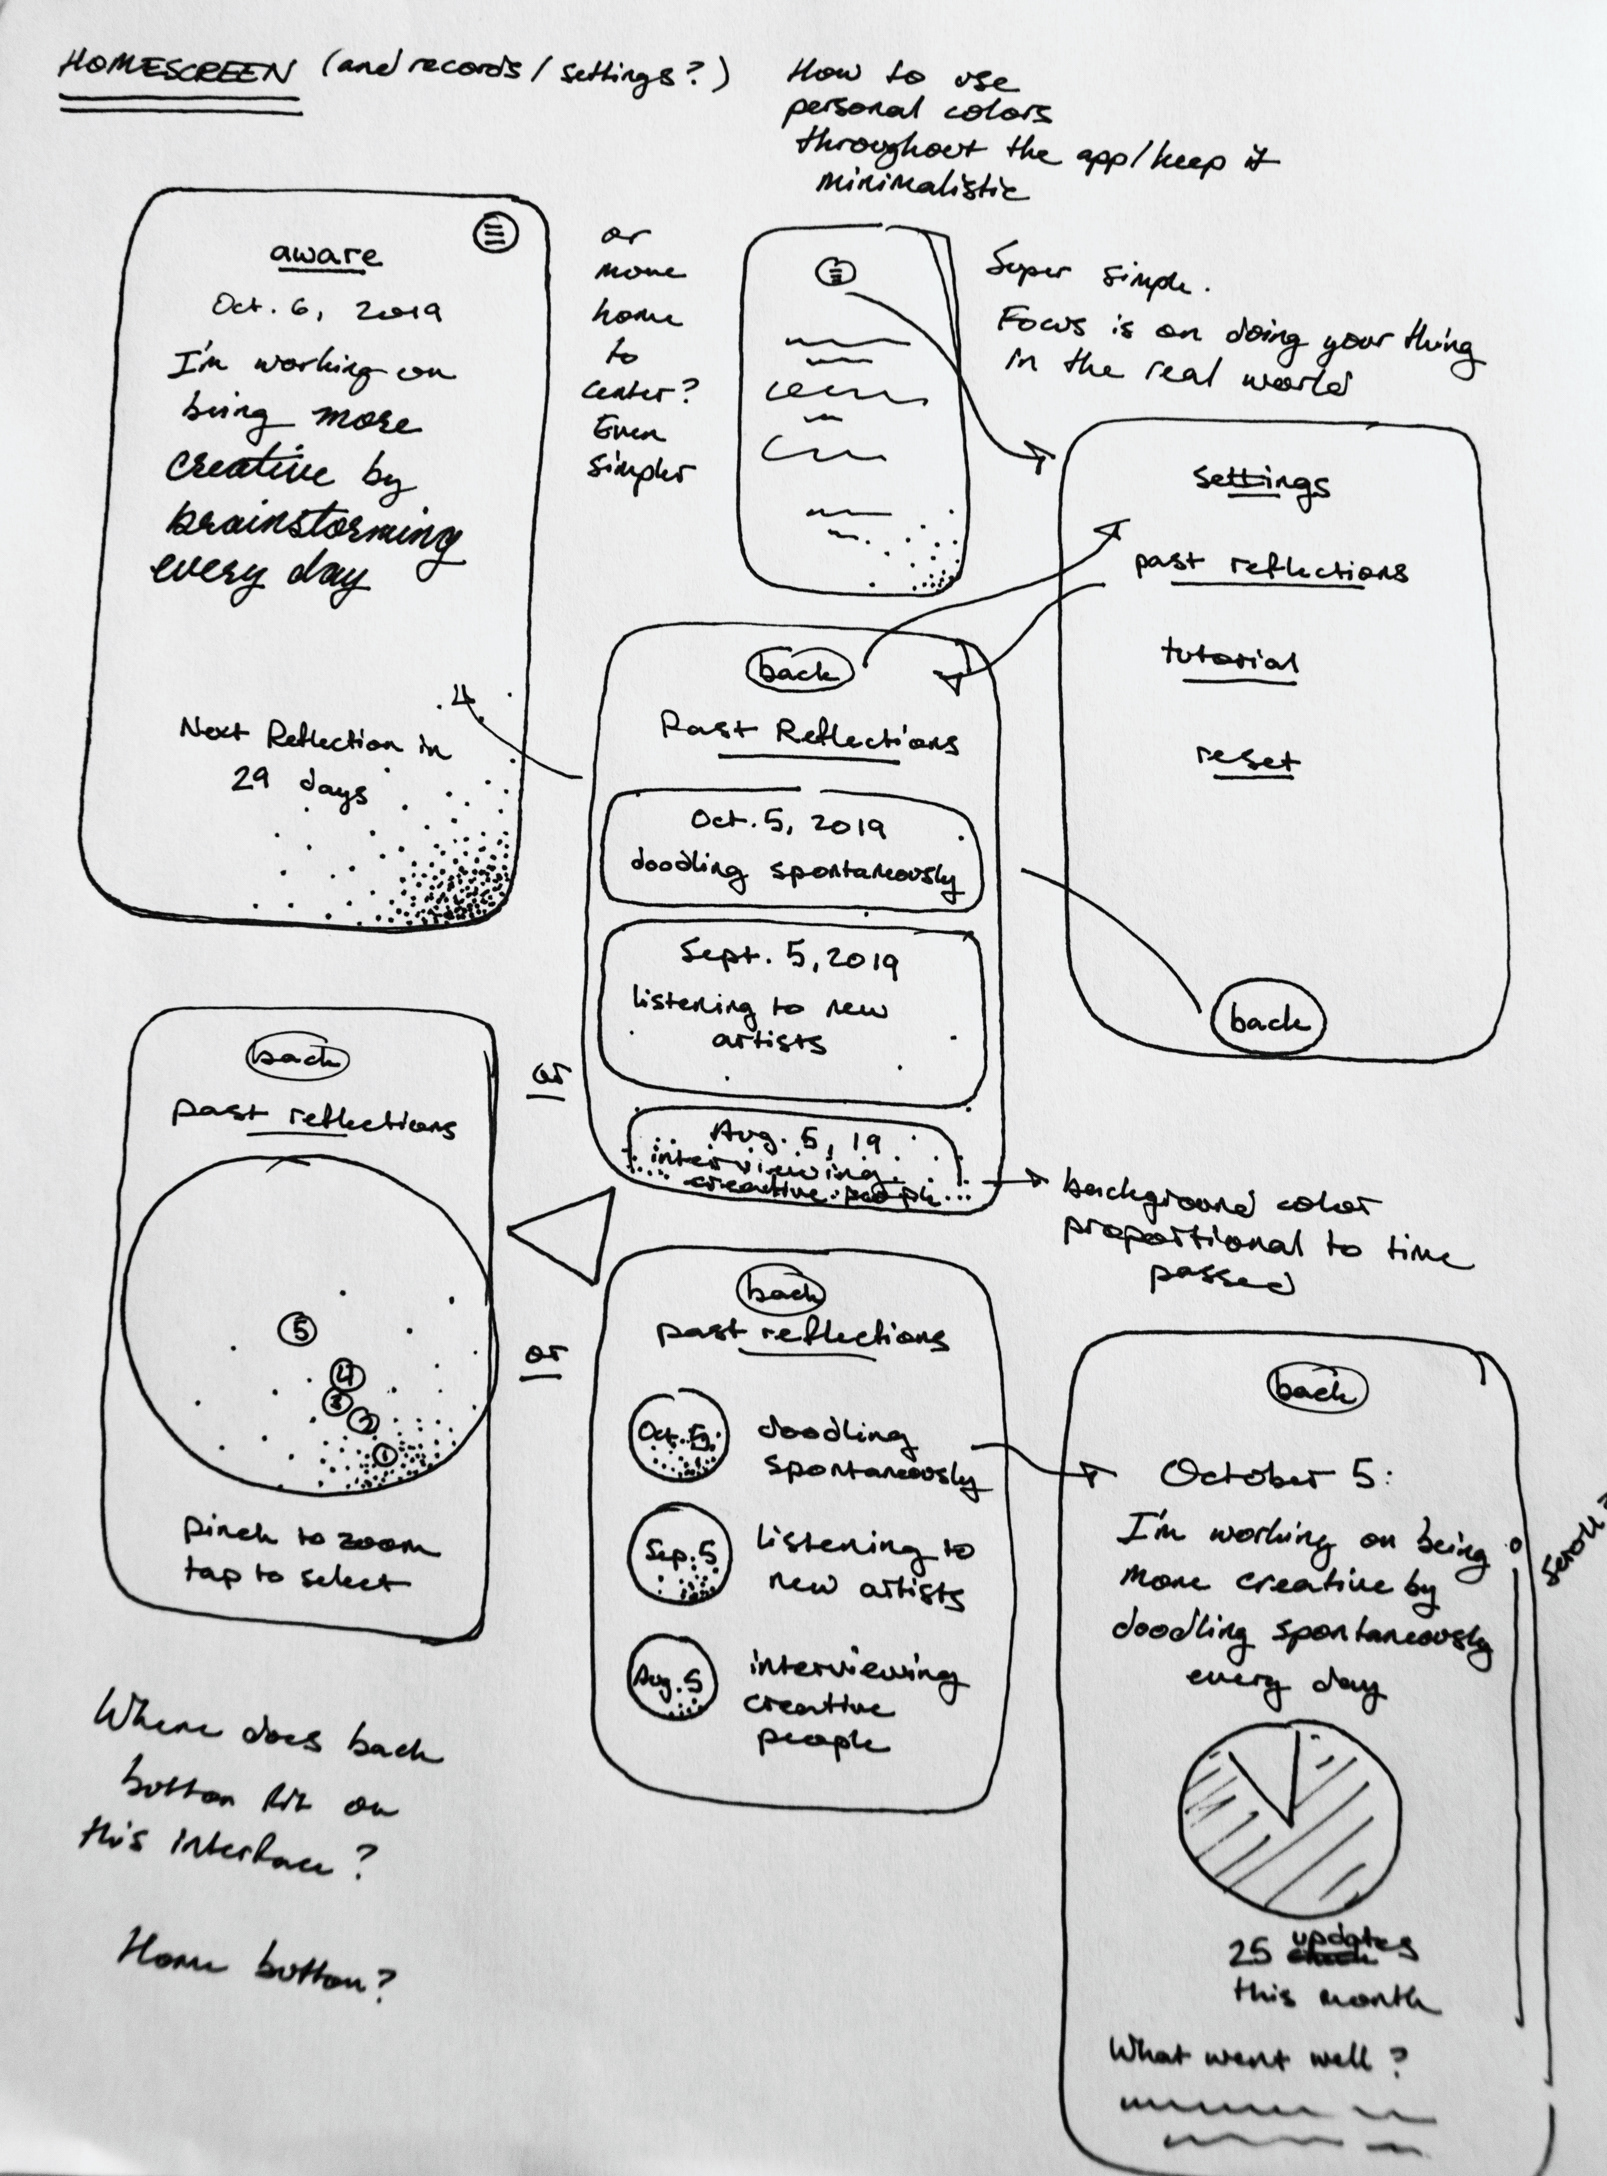 HOMESCREEN (and records / settings?)
How to use
personal colors
throughout the app/keep it
minimalistic
aware
Oct. 6, 2019
I'm working on
being more
creative by
brainstorming
every day
Next Reflection in
29 days
or
move
home
to
center?
Even
simpler
Super simple.
Focus is on doing your thing
in the real world
settings
past reflections
tutorial
reset
back
back
Past Reflections
Oct. 5, 2019
doodling spontaneously
Sept. 5, 2019
listening to new
artists
Aug. 5, 19
interviewing
creative people
background color
proportional to time
passed
or
back
past reflections
5
4
3
2
1
pinch to zoom
tap to select
or
back
past reflections
Oct. 5
doodling
spontaneously
Sep. 5
listening to
new artists
Aug. 5
interviewing
creative
people
back
October 5:
I'm working on being
more creative by
doodling spontaneously
every day
25 updates
this month
What went well?
scroll?
Where does back
button fit on
this interface?
Home button?